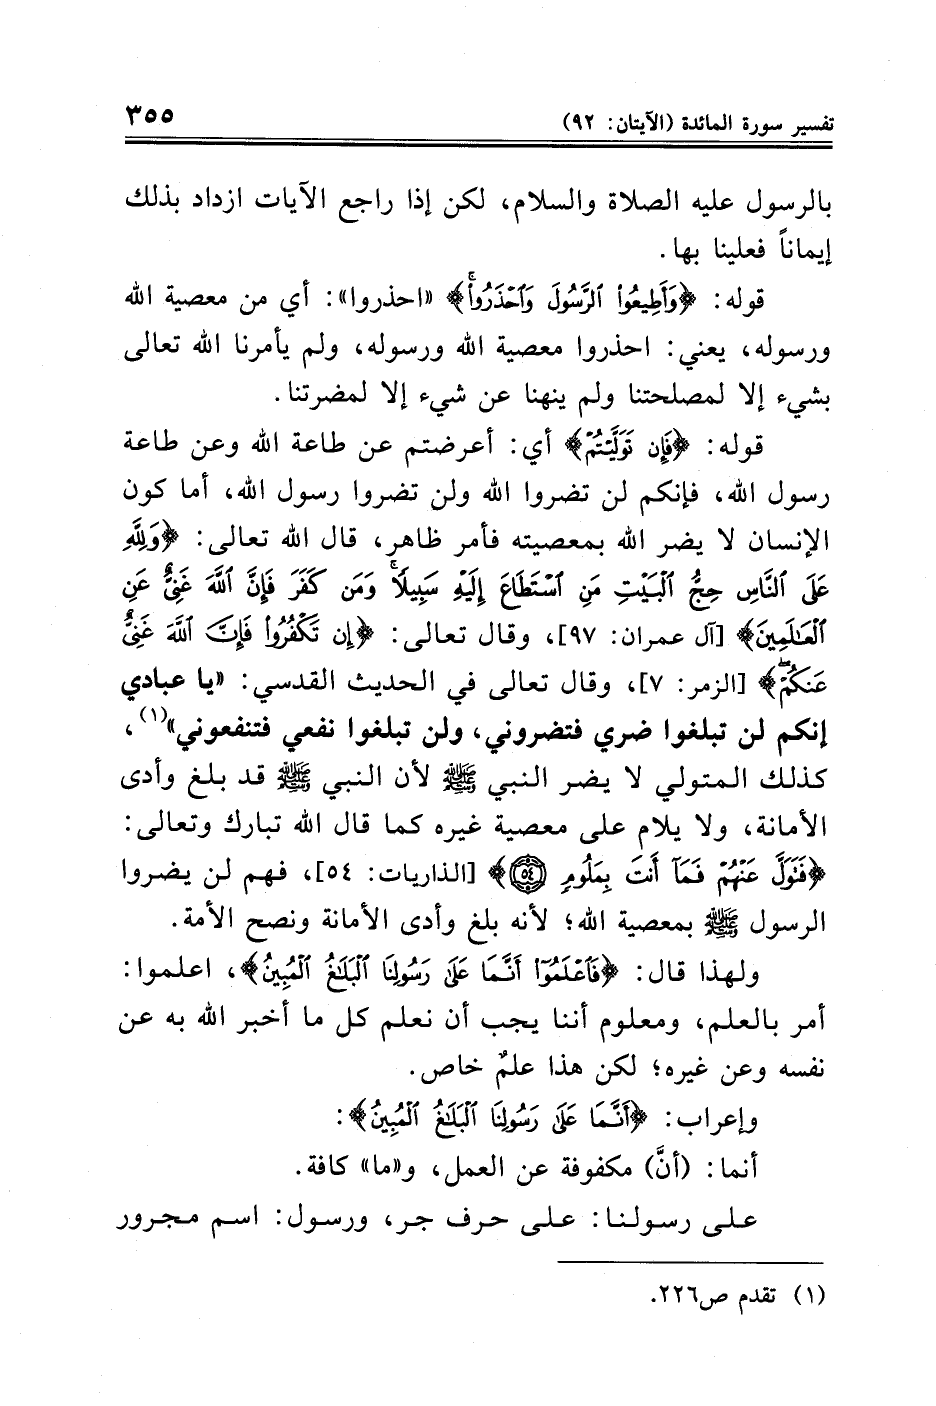 تفسير سورة المائدة (الآيتان: ٩٢) ٣٥٥
بالرسول عليه الصلاة والسلام، لكن إذا راجع الآيات ازداد بذلك
إيماناً فعلينا بها.
قوله: ﴿وَأَطِيعُوا الرَّسُولَ وَاحْذَرُوا﴾ «احذروا»: أي من معصية الله
ورسوله، يعني: احذروا معصية الله ورسوله، ولم يأمرنا الله تعالى
بشيء إلا لمصلحتنا ولم ينهنا عن شيء إلا لمضرتنا.
قوله: ﴿فَإِن تَوَلَّيْتُمْ﴾ أي: أعرضتم عن طاعة الله وعن طاعة
رسول الله، فإنكم لن تضروا الله ولن تضروا رسول الله، أما كون
الإنسان لا يضر الله بمعصيته فأمر ظاهر، قال الله تعالى: ﴿وَلِلَّهِ
عَلَى النَّاسِ حِجُّ الْبَيْتِ مَنِ اسْتَطَاعَ إِلَيْهِ سَبِيلًا ۚ وَمَن كَفَرَ فَإِنَّ اللَّهَ غَنِيٌّ عَنِ
الْعَالَمِينَ﴾ [آل عمران: ٩٧]، وقال تعالى: ﴿إِن تَكْفُرُوا فَإِنَّ اللَّهَ غَنِيٌّ
عَنكُمْ ۖ﴾ [الزمر: ٧]، وقال تعالى في الحديث القدسي: «يا عبادي
إنكم لن تبلغوا ضري فتضروني، ولن تبلغوا نفعي فتنفعوني»(١)،
كذلك المتولي لا يضر النبي ﷺ لأن النبي ﷺ قد بلغ وأدى
الأمانة، ولا يلام على معصية غيره كما قال الله تبارك وتعالى:
﴿فَتَوَلَّ عَنْهُمْ فَمَا أَنتَ بِمَلُومٍ ٥٤﴾ [الذاريات: ٥٤]، فهم لن يضروا
الرسول ﷺ بمعصية الله؛ لأنه بلغ وأدى الأمانة ونصح الأمة.
ولهذا قال: ﴿فَاعْلَمُوا أَنَّمَا عَلَىٰ رَسُولِنَا الْبَلَاغُ الْمُبِينُ﴾، اعلموا:
أمر بالعلم، ومعلوم أننا يجب أن نعلم كل ما أخبر الله به عن
نفسه وعن غيره؛ لكن هذا علمٌ خاص.
وإعراب: ﴿أَنَّمَا عَلَىٰ رَسُولِنَا الْبَلَاغُ الْمُبِينُ﴾:
أنما: (أنَّ) مكفوفة عن العمل، و«ما» كافة.
على رسولنا: على حرف جر، ورسول: اسم مجرور
(١) تقدم ص٢٢٦.